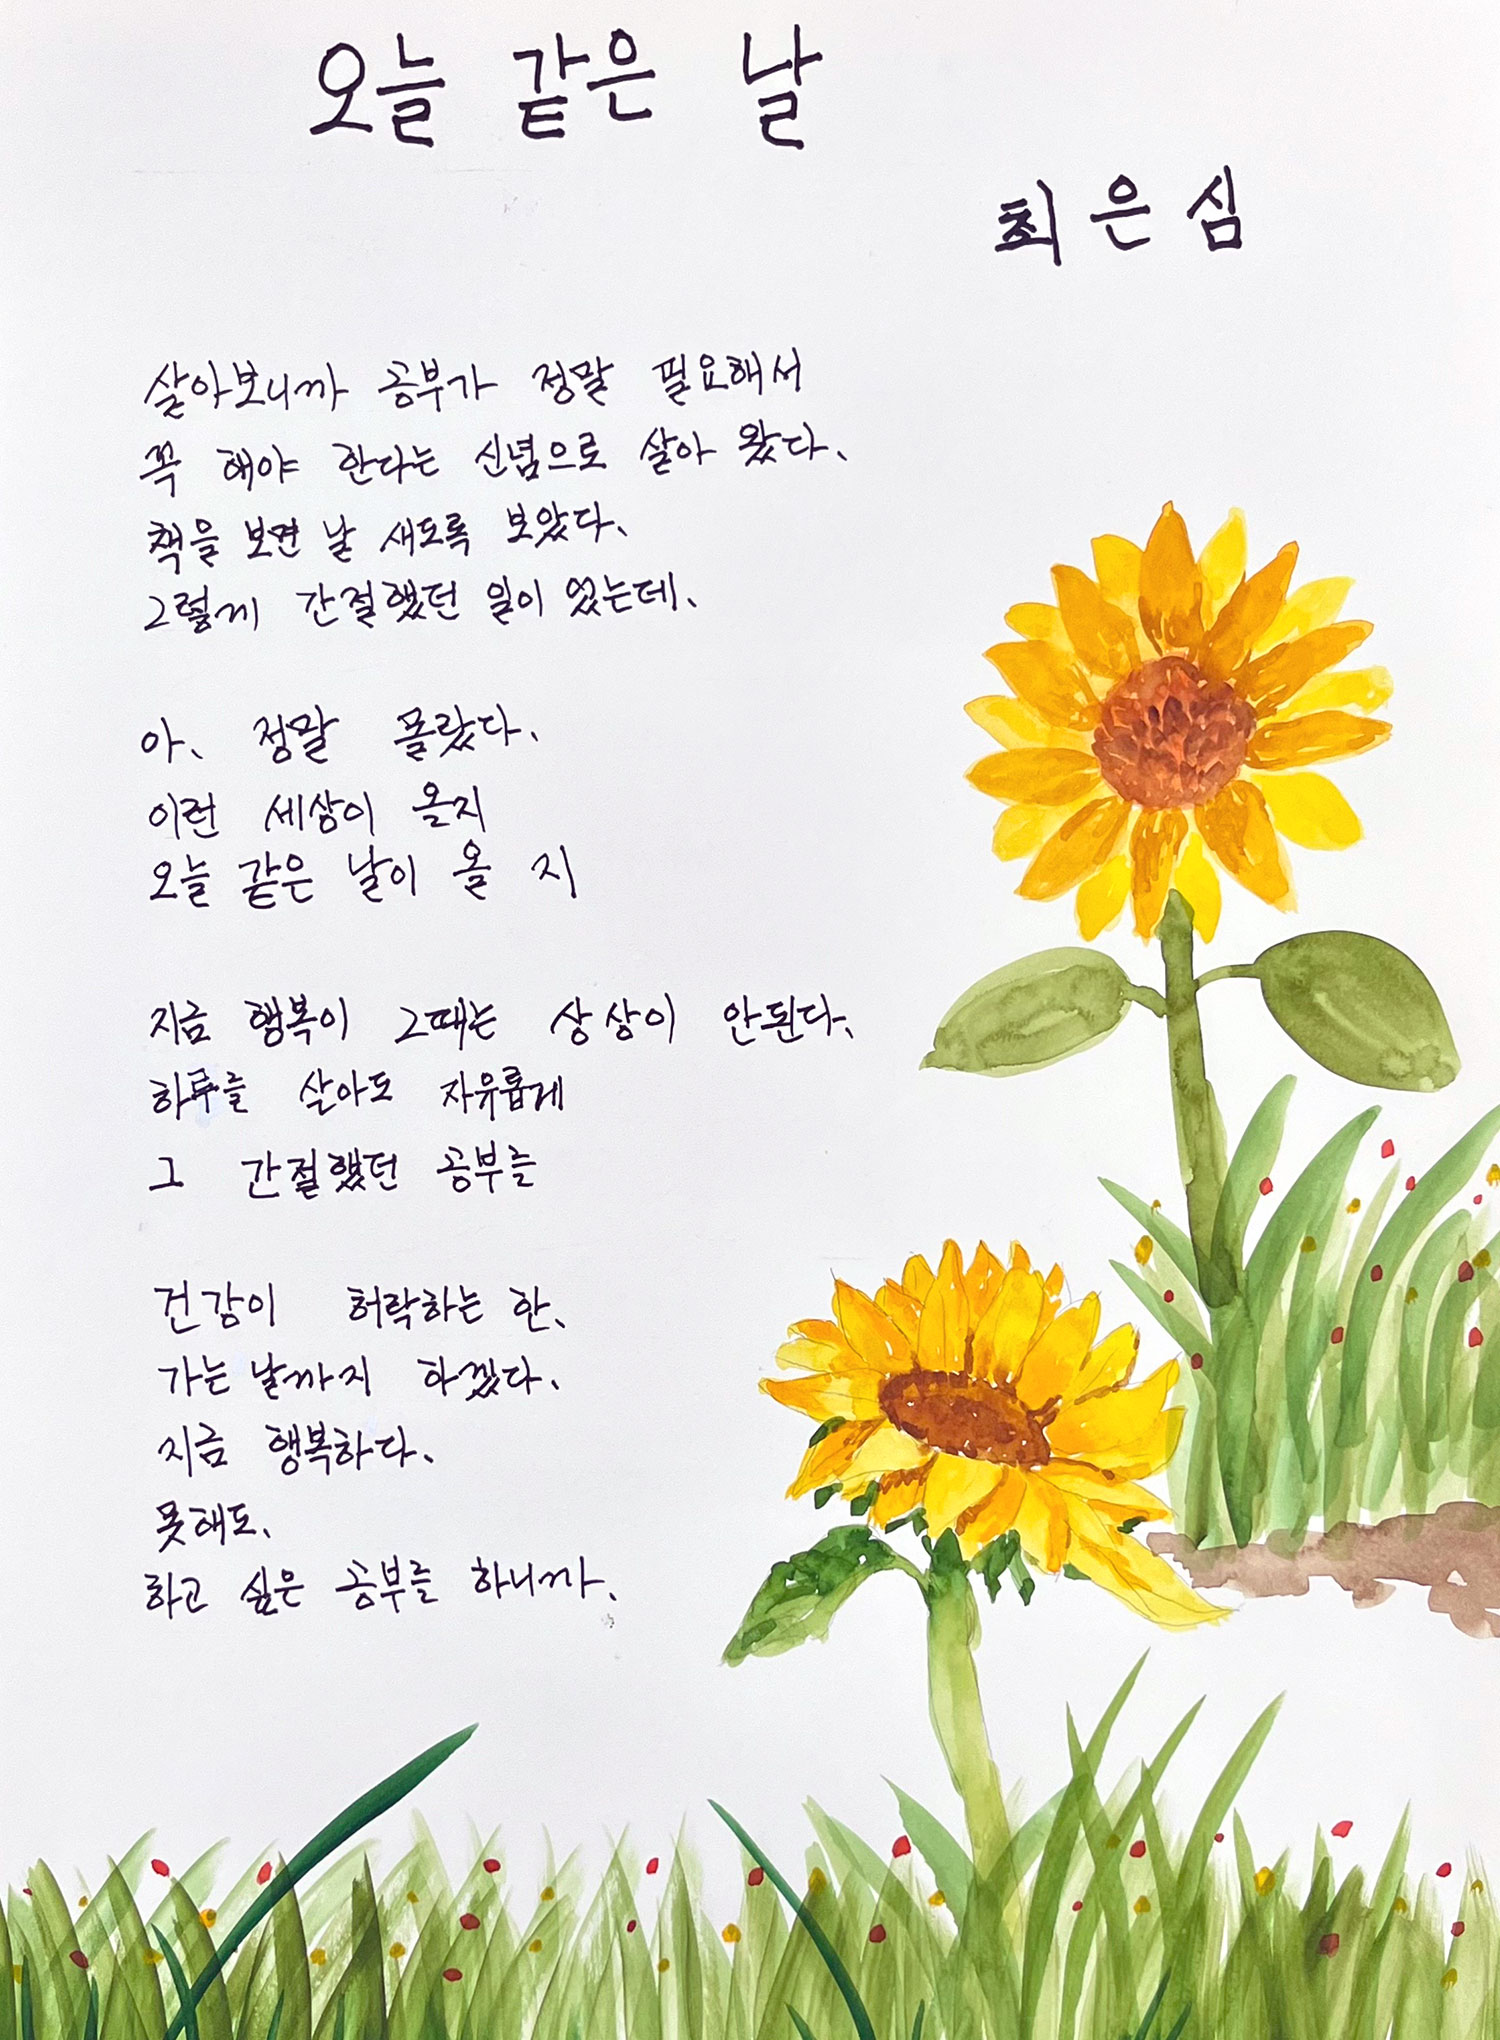 오늘 같은 날
최은심
살아보니까 공부가 정말 필요해서
꼭 해야 한다는 신념으로 살아 왔다.
책을 보면 날 새도록 보았다.
그렇게 간절했던 일이 있는데.
아, 정말 몰랐다.
이런 세상이 올지
오늘 같은 날이 올 지
지금 행복이 그때는 상상이 안된다.
하루를 살아도 자유롭게
그 간절했던 공부를
건강이 허락하는 한,
가는 날까지 하겠다.
지금 행복하다.
못해도,
하고 싶은 공부를 하니까.